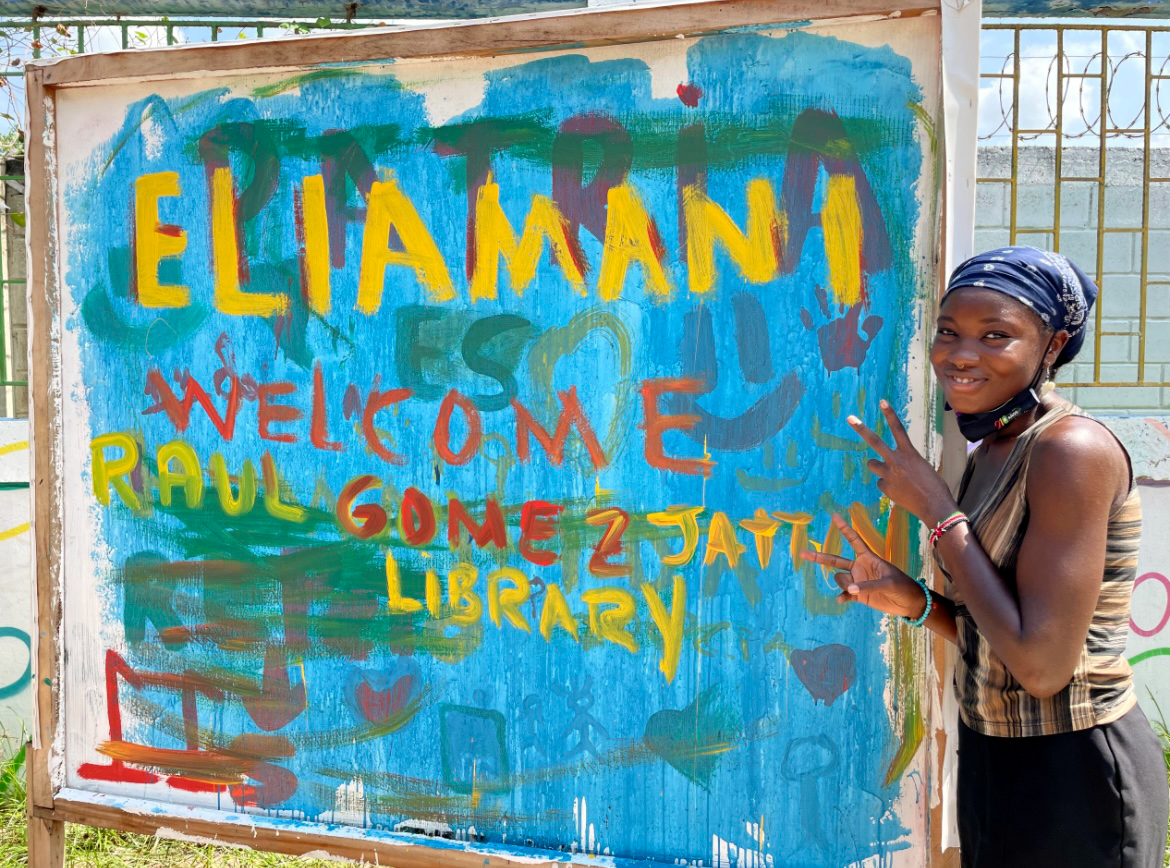 PATRiA
ELIAMANI
ES
WELCOME
RAUL GOMEZ JATTIN
LIBRARY